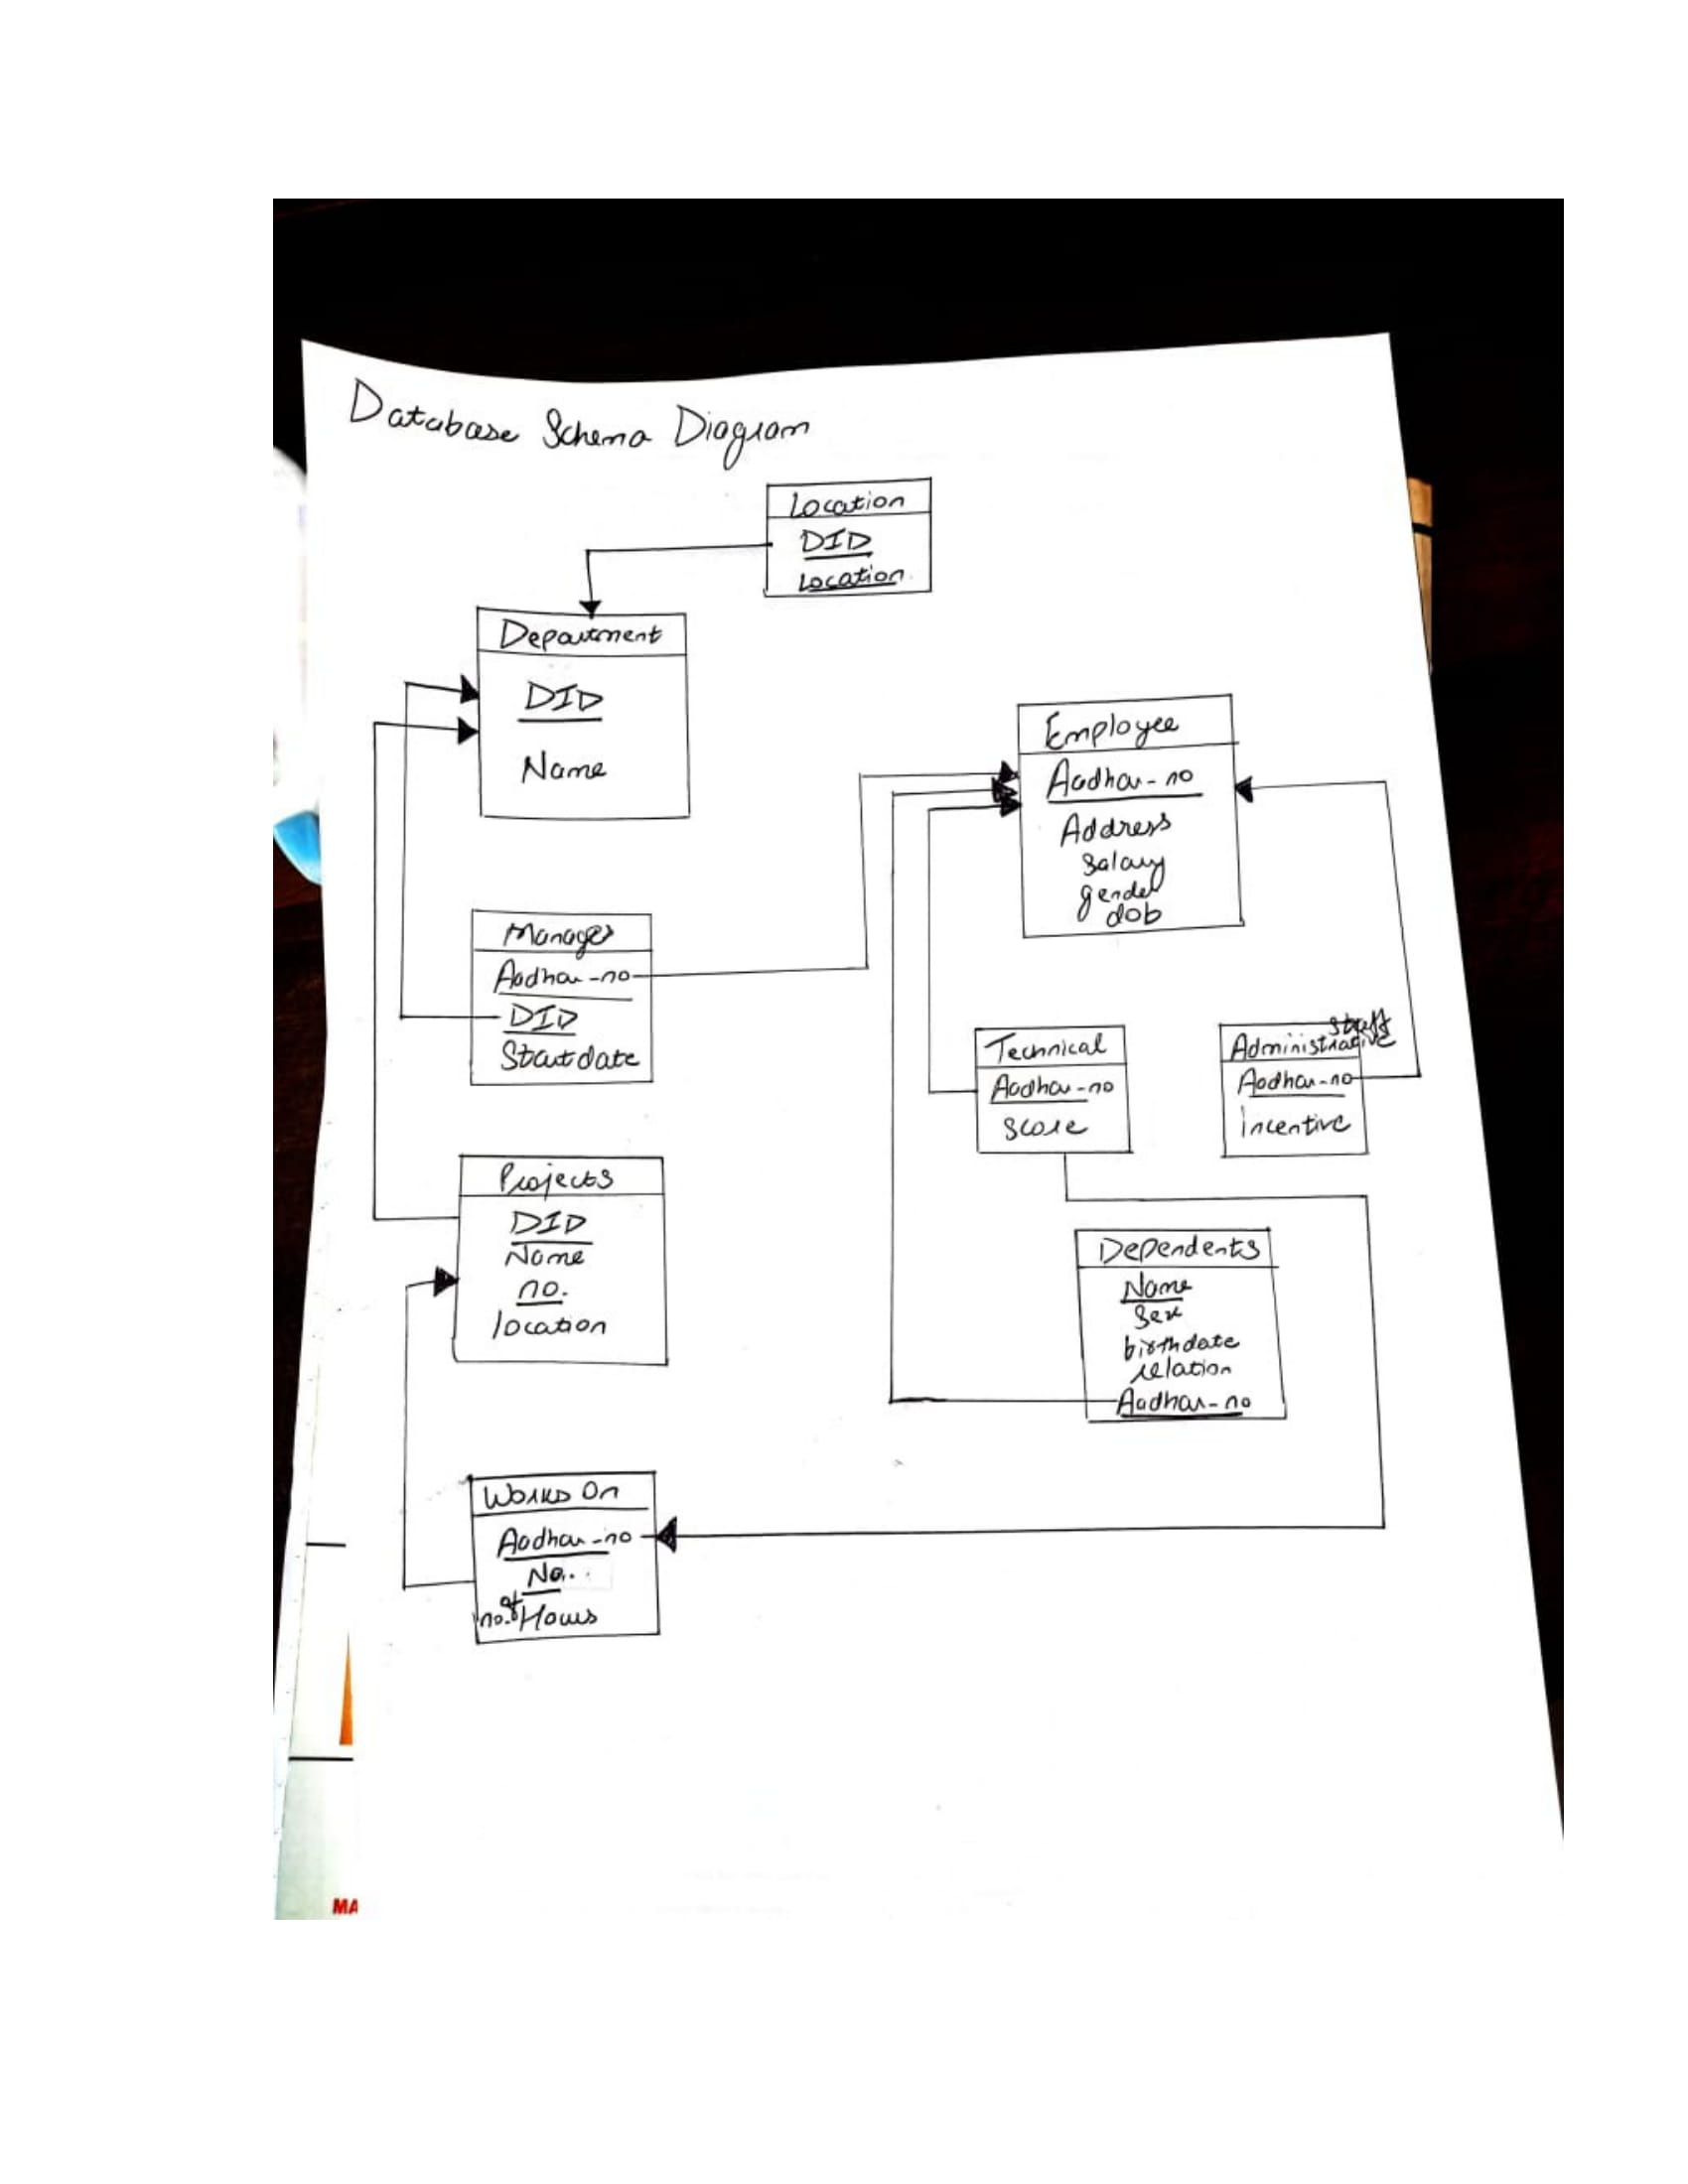 Database Schema Diagram
Location
DID
Location
Department
DID
Name
Employee
Aadhar-no
Address
Salary
gender
dob
Manager
Aadhar-no
DID
Start date
Technical
Aadhar-no
Score
Administrative staff
Aadhar-no
incentive
Projects
DID
Name
no.
location
Dependents
Name
Sex
birthdate
relation
Aadhar-no
Works On
Aadhar-no
No.
no. of Hours
MA